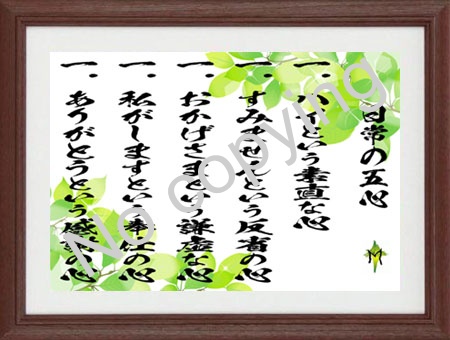 日常の五心
一．ハイという素直な心
一．すみませんという反省の心
一．おかげさまという謙虚な心
一．私がしますという奉仕の心
一．ありがとうという感謝の心
M
No copying